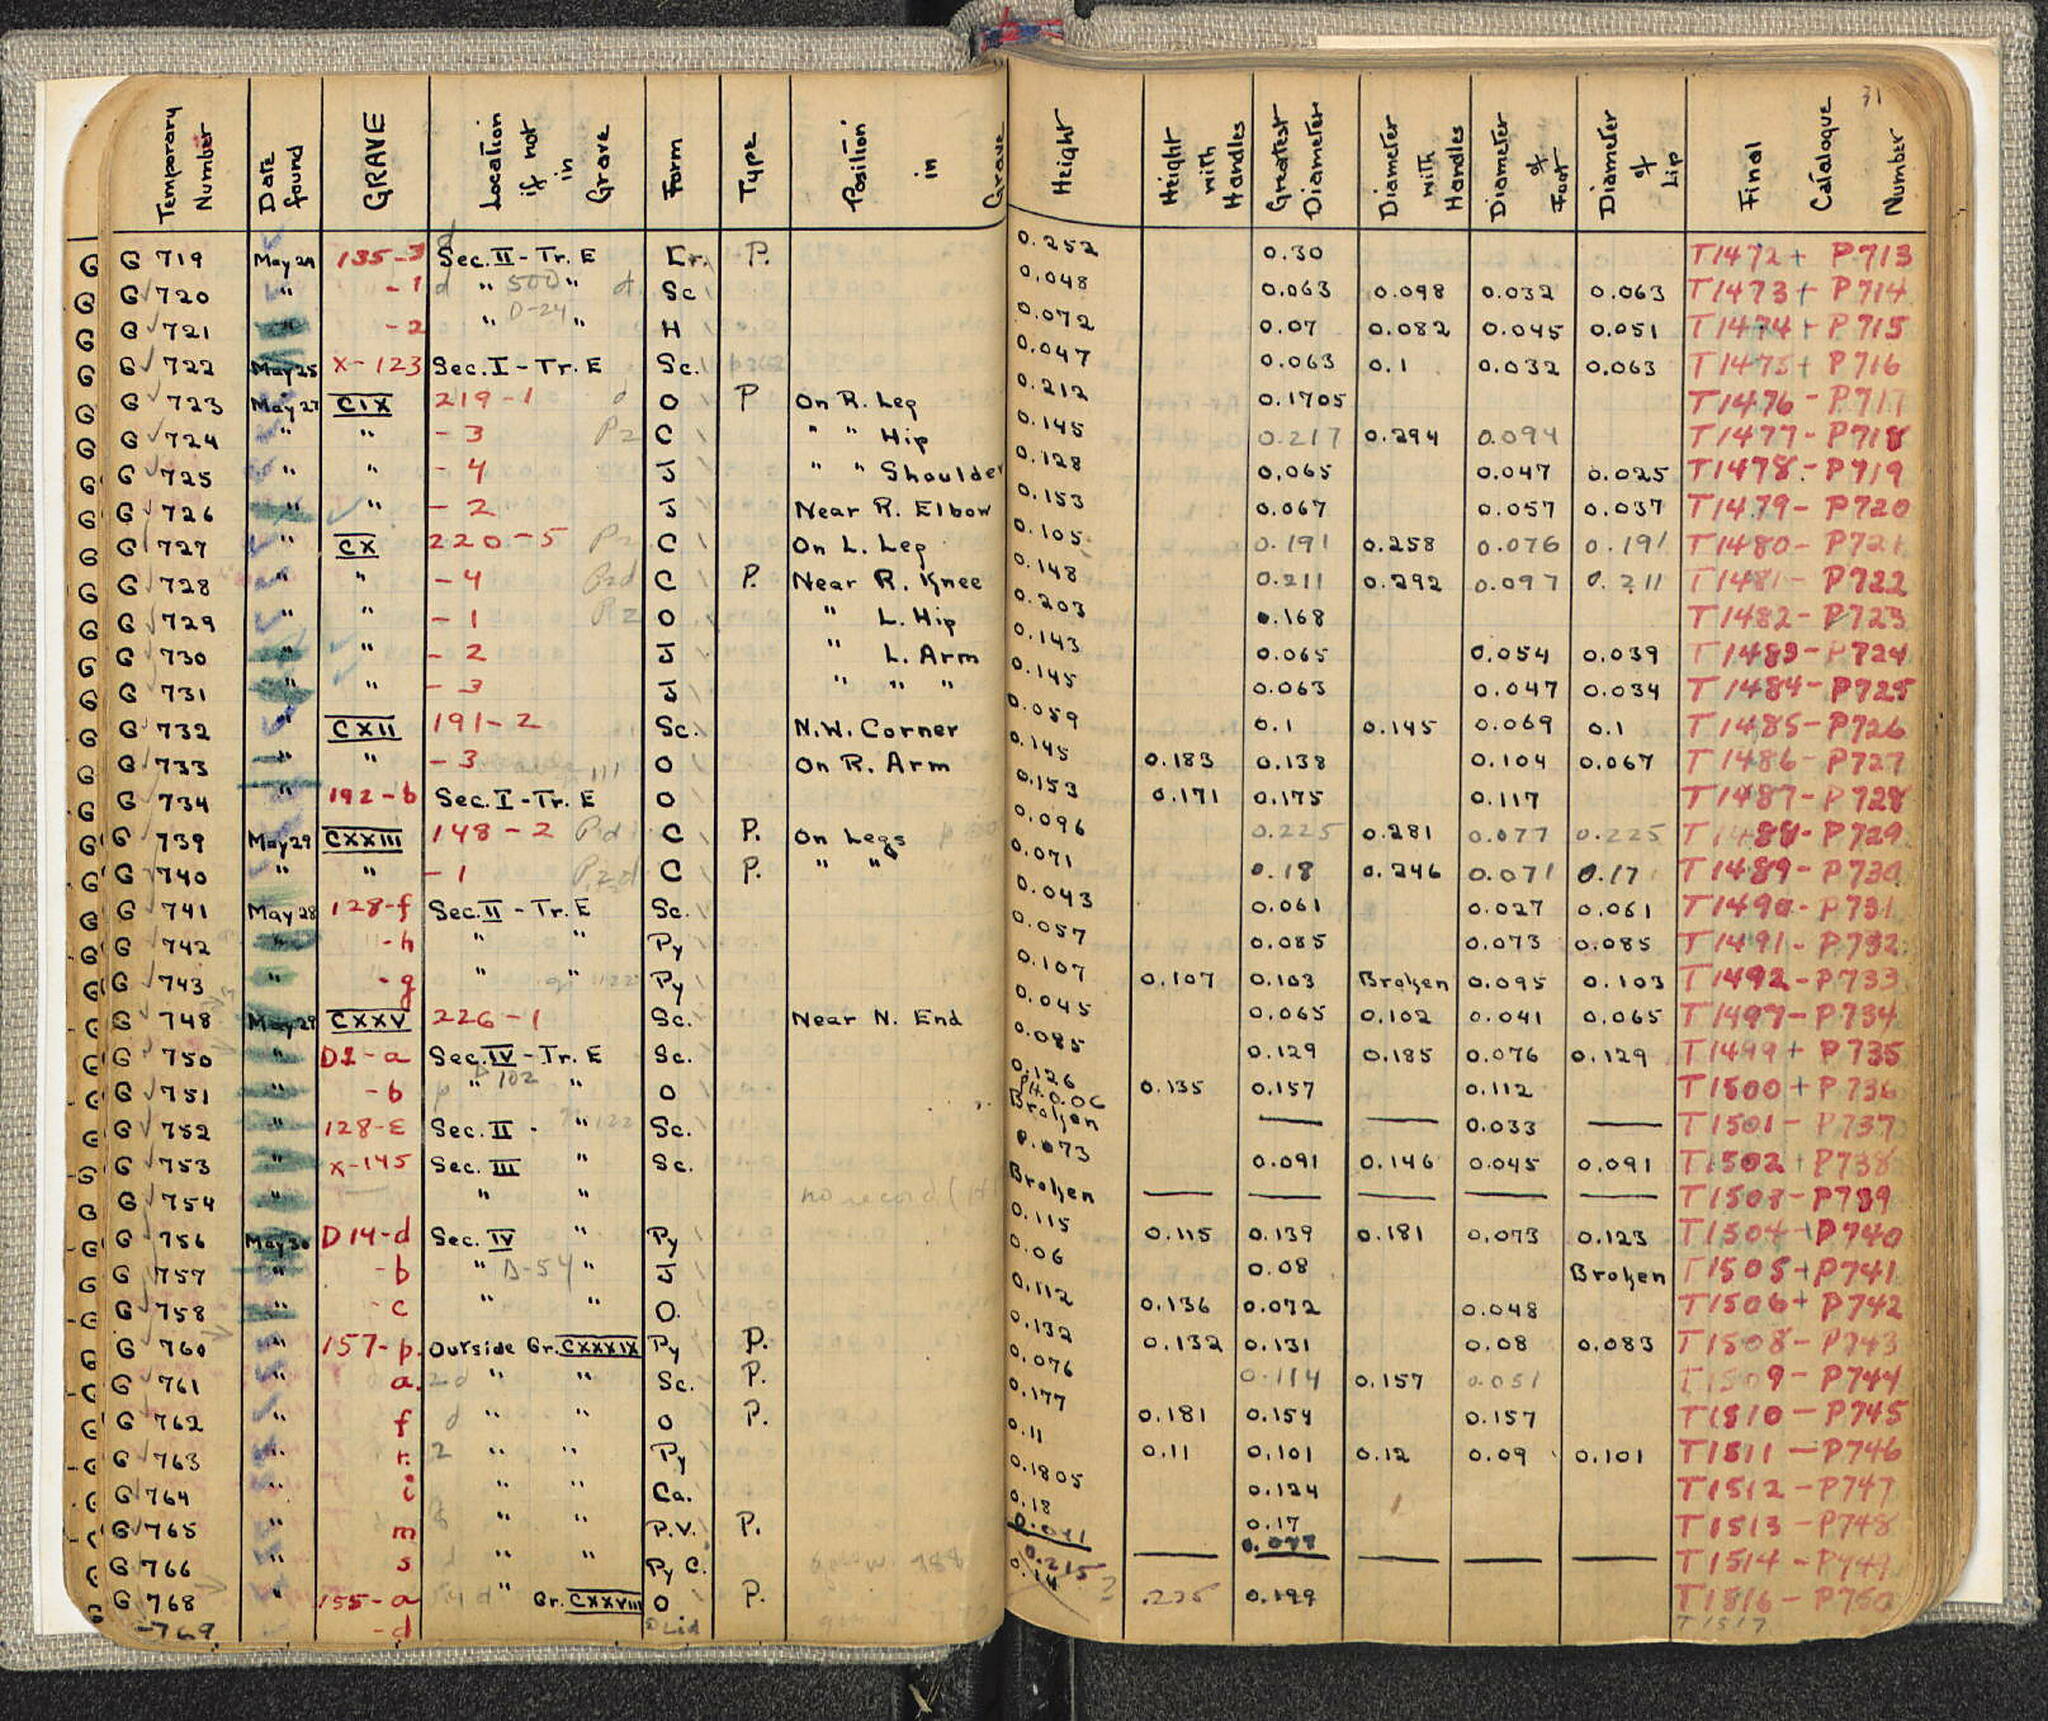 31
Temporary Number Date found GRAVE Location if not in Grave Form Type Position in Grave Height Height with Handles Greatest Diameter Diameter with Handles Diameter of Foot Diameter of Lip Final Catalogue Number
G 719 May 24 135-3 Sec. II - Tr. E Kr. P. 0.252 0.30 T1472+ P713
G 720 " -1 d " 500 " d Sc 0.048 0.063 0.098 0.032 0.063 T1473+ P714
G 721 " -2 " D-24 " H 0.072 0.07 0.082 0.045 0.051 T1474+ P715
G 722 May 25 X-123 Sec. I - Tr. E Sc. 0.047 0.063 0.1 0.032 0.063 T1475+ P716
G 723 May 27 CIX 219-1 d O P On R. Leg 0.212 0.1705 T1476- P717
G 724 " " -3 P2 C " " Hip 0.145 0.217 0.294 0.094 T1477- P718
G 725 " " -4 J " " Shoulder 0.128 0.065 0.047 0.025 T1478- P719
G 726 " " -2 J Near R. Elbow 0.153 0.067 0.057 0.037 T1479- P720
G 727 " CX 220-5 P2 C On L. Leg 0.105 0.191 0.258 0.076 0.191 T1480- P721
G 728 " " -4 P2d C P. Near R. Knee 0.148 0.211 0.292 0.097 0.211 T1481- P722
G 729 " " -1 P2 O " L. Hip 0.203 0.168 T1482- P723
G 730 " " -2 J " L. Arm 0.143 0.065 0.054 0.039 T1483- P724
G 731 " " -3 J " " " 0.145 0.063 0.047 0.034 T1484- P725
G 732 " CXII 191-2 Sc. N.W. Corner 0.059 0.1 0.145 0.069 0.1 T1485- P726
G 733 " " -3 O On R. Arm 0.145 0.183 0.138 0.104 0.067 T1486- P727
G 734 " 192-b Sec. I - Tr. E O 0.153 0.171 0.175 0.117 T1487- P728
G 739 May 29 CXXIII 148-2 P.d C P. On Legs 0.096 0.225 0.281 0.077 0.225 T1488- P729
G 740 " " -1 P2d C P. " " 0.071 0.18 0.246 0.071 0.17 T1489- P730
G 741 May 28 128-f Sec. II - Tr. E Sc. 0.043 0.061 0.027 0.061 T1490- P731
G 742 " -h " " Py 0.057 0.085 0.073 0.085 T1491- P732
G 743 " -g " " Py 0.107 0.107 0.103 Broken 0.095 0.103 T1492- P733
G 748 May 29 CXXV 226-1 Sc. Near N. End 0.045 0.065 0.102 0.041 0.065 T1497- P734
G 750 " D1-a Sec. IV - Tr. E Sc. 0.085 0.129 0.185 0.076 0.129 T1499+ P735
G 751 " -b " 102 " O 0.126 0.135 0.157 0.112 T1500+ P736
G 752 " 128-E Sec. II - " Sc. PH. 0.06 Broken — — 0.033 — T1501- P737
G 753 " X-145 Sec. III " Sc. 0.073 0.091 0.146 0.045 0.091 T1502+ P738
G 754 " — " " no record Broken — — — — — T1503- P739
G 756 May 30 D14-d Sec. IV " Py 0.115 0.115 0.139 0.181 0.073 0.123 T1504+ P740
G 757 " -b " D-54 " J 0.06 0.08 Broken T1505+ P741
G 758 " c " " O. 0.112 0.136 0.072 0.048 T1506+ P742
G 760 " 157-p. Outside Gr. CXXXIX Py P. 0.132 0.132 0.131 0.08 0.083 T1508- P743
G 761 " a. 2d " " Sc. P. 0.076 0.114 0.157 0.051 T1509- P744
G 762 " f d " " O P. 0.177 0.181 0.154 0.157 T1510- P745
G 763 " r. 2 " " Py 0.11 0.11 0.101 0.12 0.09 0.101 T1511- P746
G 764 " i " " Ca. 0.1805 0.124 T1512- P747
G 765 " m " " P.V. P. 0.18 0.17 T1513- P748
G 766 " s " " Py C. 0.041 — — — — T1514- P749
G 768 " 155-a d " Gr. CXXVIII O P. 0.215 0.14 ? .225 0.199 T1516- P750
-769 -d Lid T1517